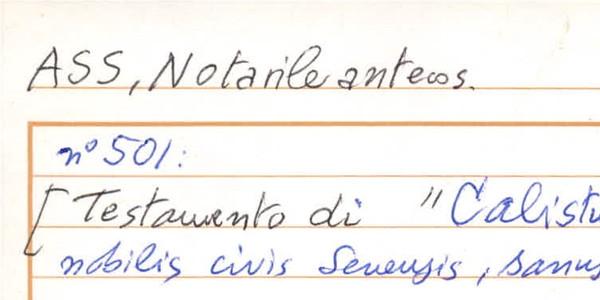 ASS, Notarile antecos.
n° 501:
[Testamento di "Calistu
nobilis civis Senensis, sanus